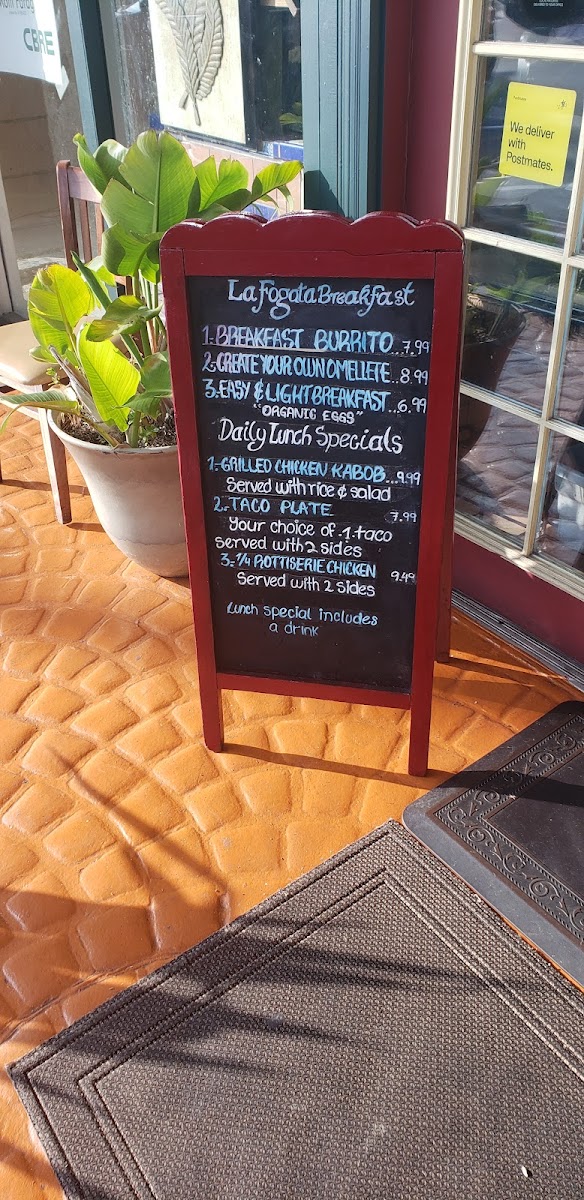 CBRE
We deliver
with
Postmates.
La Fogata Breakfast
1. BREAKFAST BURRITO...7.99
2. CREATE YOUR OWN OMELLETE...8.99
3. EASY & LIGHT BREAKFAST...6.99
"ORGANIC EGGS"
Daily Lunch Specials
1.- GRILLED CHICKEN KABOB...9.99
Served with rice & salad
2.- TACO PLATE 7.99
Your choice of .1. taco
served with 2 sides
3.- 1/4 ROTTISERIE CHICKEN 9.49
Served with 2 sides
Lunch special includes
a drink